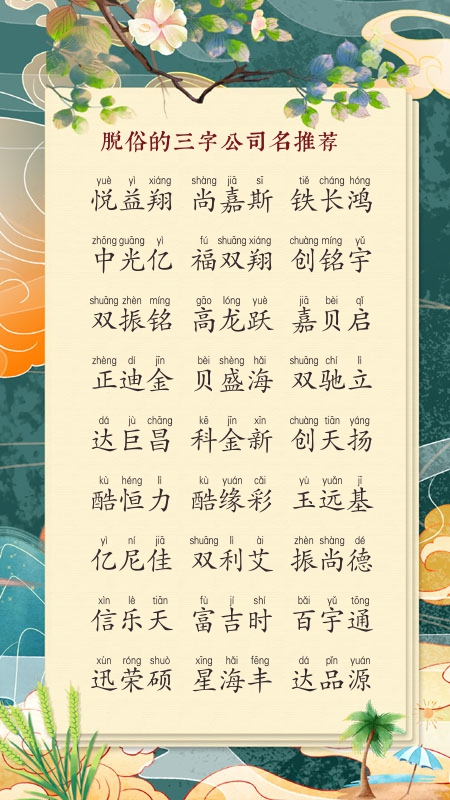 脱俗的三字公司名推荐
yuè yì xiáng shàng jiā sī tiě cháng hóng
悦益翔 尚嘉斯 铁长鸿
zhōng guāng yì fú shuāng xiáng chuàng míng yǔ
中光亿 福双翔 创铭宇
shuāng zhèn míng gāo lóng yuè jiā bèi qǐ
双振铭 高龙跃 嘉贝启
zhèng dí jīn bèi shèng hǎi shuāng chí lì
正迪金 贝盛海 双驰立
dá jù chāng kē jīn xīn chuàng tiān yáng
达巨昌 科金新 创天扬
kù héng lì kù yuán cǎi yù yuǎn jī
酷恒力 酷缘彩 玉远基
yì ní jiā shuāng lì ài zhèn shàng dé
亿尼佳 双利艾 振尚德
xìn lè tiān fù jí shí bǎi yǔ tōng
信乐天 富吉时 百宇通
xùn róng shuò xīng hǎi fēng dá pǐn yuán
迅荣硕 星海丰 达品源